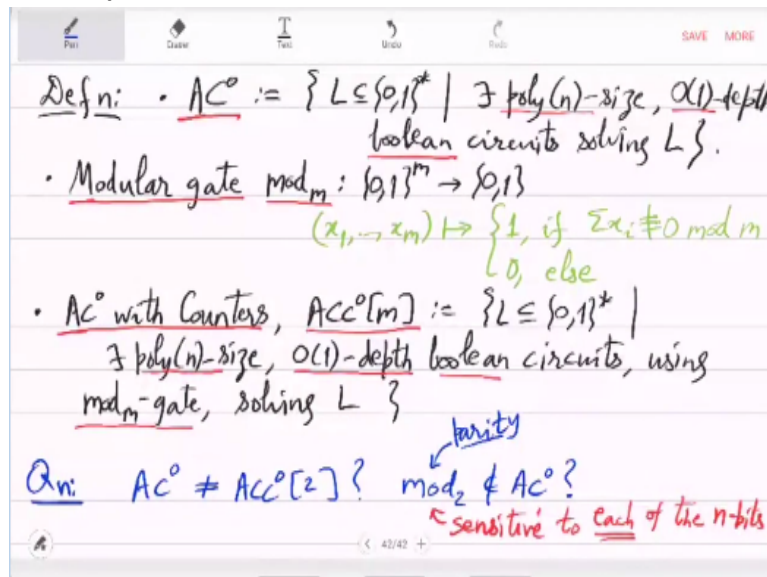 Pen Eraser Text Undo Redo SAVE MORE
Defn: · AC⁰ := { L ⊆ {0,1}* | ∃ poly(n)-size, O(1)-depth
boolean circuits solving L }.
· Modular gate mod_m : {0,1}^m → {0,1}
(x₁, .., x_m) ↦ { 1, if Σxᵢ ≢ 0 mod m
0, else
· AC⁰ with Counters, ACC⁰[m] := { L ⊆ {0,1}* |
∃ poly(n)-size, O(1)-depth boolean circuits, using
mod_m-gate, solving L }
parity
Qn: AC⁰ ≠ ACC⁰[2]? mod₂ ∉ AC⁰?
sensitive to each of the n-bits
< 42/42 +